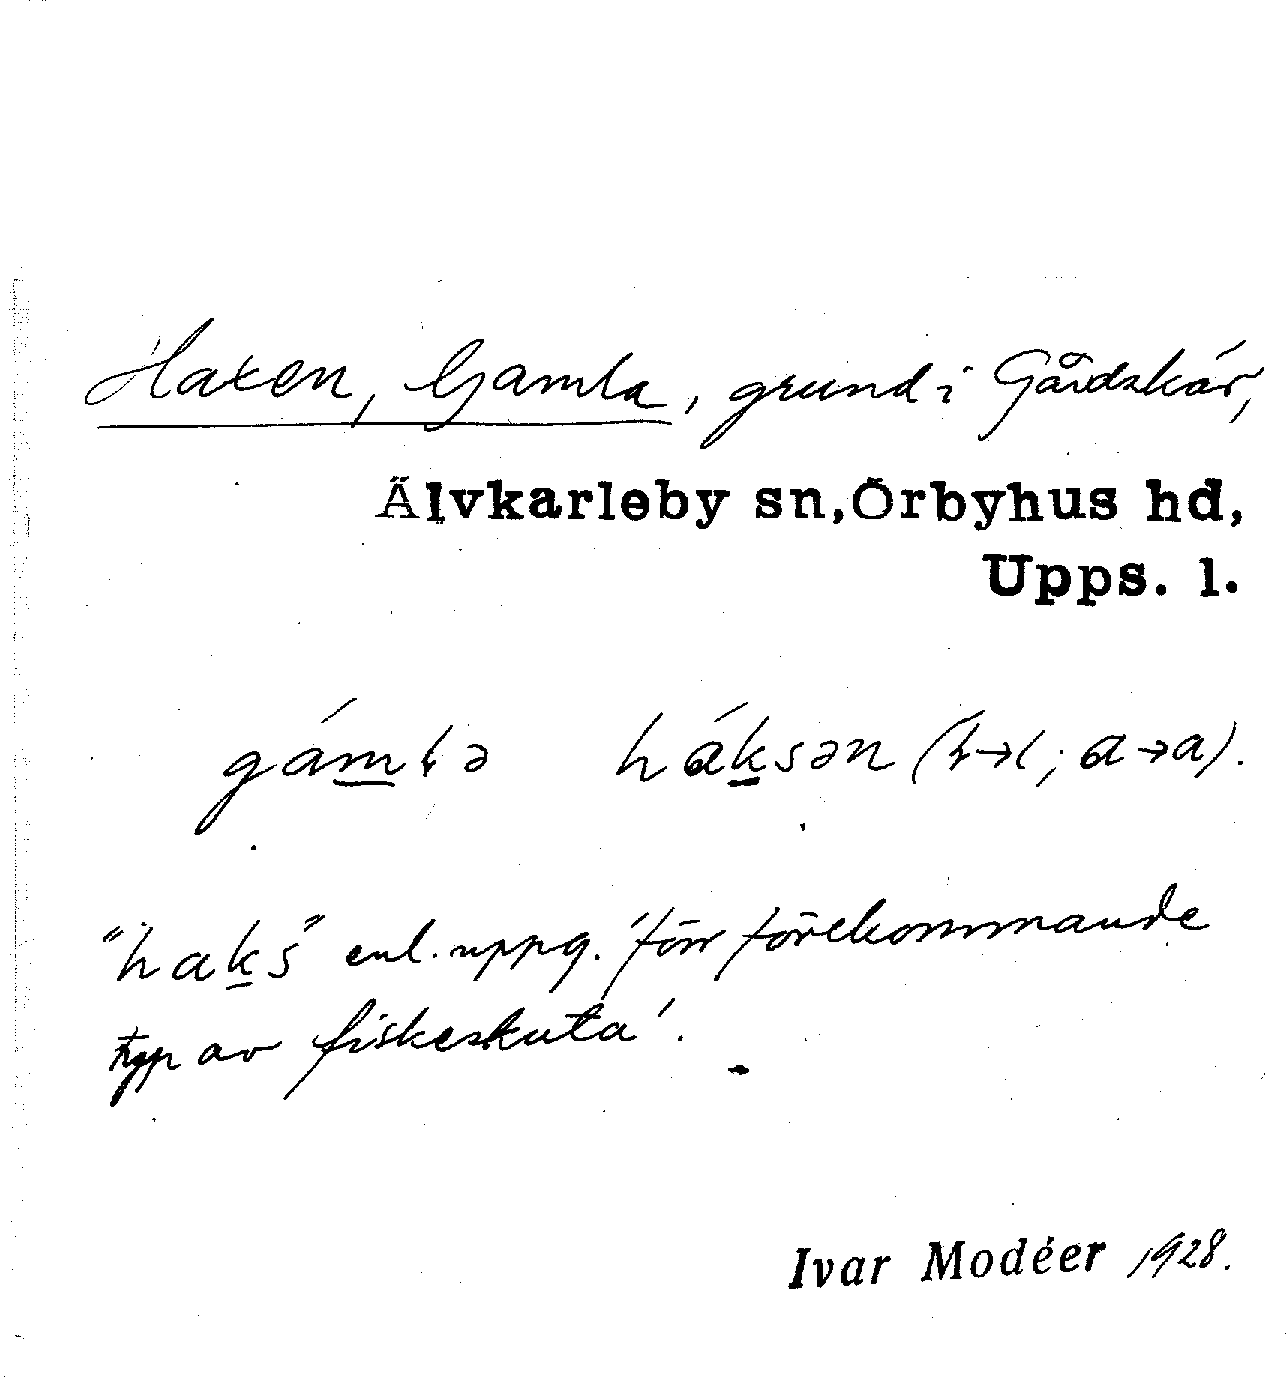 Haxen, Gamla, grund i Gårdskär,
Älvkarleby sn, Örbyhus hd,
Upps. l.
gámɫə háksən (ɫ→l; ɑ→a).
"haks" enl. uppg. 'förr förekommande
typ av fiskeskuta'.
Ivar Modéer 1928.